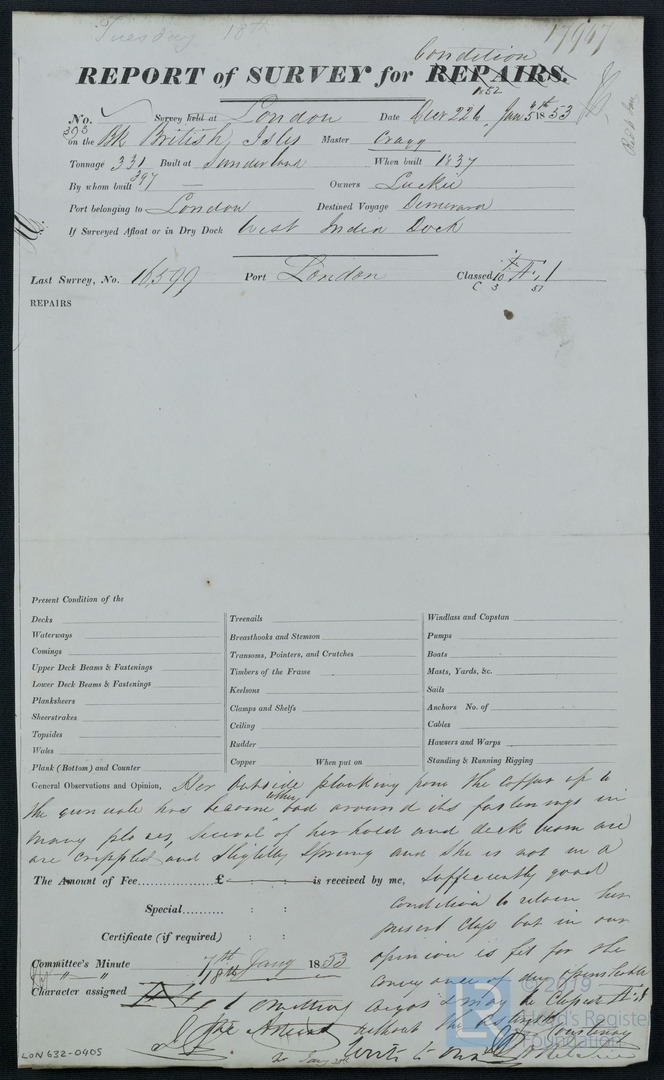 Tuesday 18th
17967
Condition
REPORT of SURVEY for REPAIRS.
1852
No. Survey held at London Date Decr 22 & Jany 5th 1853
393
on the Bk British Isles Master Cragg
Tonnage 331 Built at Sunderland When built 1837
397
By whom built — Owners Luckie
Port belonging to London Destined Voyage Demerara
If Surveyed Afloat or in Dry Dock West India Dock
Last Survey, No. 16599 Port London Classed A 1
C 3 51
REPAIRS
Present Condition of the
Decks
Waterways
Comings
Upper Deck Beams & Fastenings
Lower Deck Beams & Fastenings
Planksheers
Sheerstrakes
Topsides
Wales
Plank (Bottom) and Counter
Treenails
Breasthooks and Stemson
Transoms, Pointers, and Crutches
Timbers of the Frame
Keelsons
Clamps and Shelfs
Ceiling
Rudder
Copper When put on
Windlass and Capstan
Pumps
Boats
Masts, Yards, &c.
Sails
Anchors No. of
Cables
Hawsers and Warps
Standing & Running Rigging
General Observations and Opinion, Her Outside planking from the copper up to
the gunwale has become bad around its fastenings in
many places, several of her hold and deck beams are
are crippled and slightly sprung and she is not in a
The Amount of Fee £ is received by me, sufficiently good
condition to retain her
Special : :
present class but in our
Certificate (if required) : :
opinion is fit for the
Committee's Minute 7th Jany 1853
18th
conveyance of dry & perishable
Character assigned
cargoes & may be Classed
omitting
without the
Courtenay
Write to
LON632-0405
© 2019
Lloyd's Register
Foundation